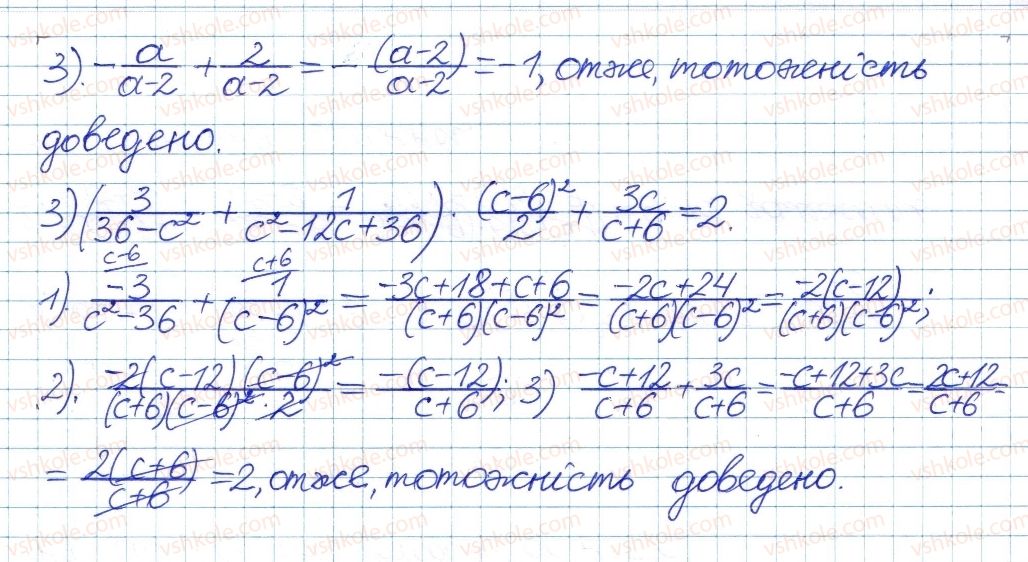 3). -a/(a-2) + 2/(a-2) = -(a-2)/(a-2) = -1, отже, тотожність
доведено.
3) (3/(36-c²) + 1/(c²-12c+36)) · (c-6)²/2 + 3c/(c+6) = 2.
1). -3/(c²-36) (c-6) + 1/(c-6)² (c+6) = (-3c+18+c+6)/((c+6)(c-6)²) = (-2c+24)/((c+6)(c-6)²) = -2(c-12)/((c+6)(c-6)²);
2). -2(c-12)(c-6)²/((c+6)(c-6)²·2) = -(c-12)/(c+6); 3) (-c+12)/(c+6) + 3c/(c+6) = (-c+12+3c)/(c+6) = (2c+12)/(c+6) =
= 2(c+6)/(c+6) = 2, отже, тотожність доведено.